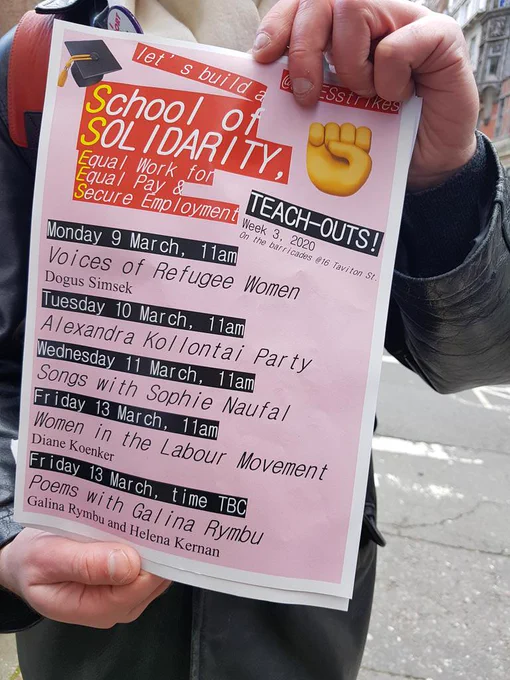 let's build a
School of
SOLIDARITY,
Equal Work for
Equal Pay &
Secure Employment
TEACH-OUTS!
Week 3, 2020
On the barricades @16 Taviton St.
Monday 9 March, 11am
Voices of Refugee Women
Dogus Simsek
Tuesday 10 March, 11am
Alexandra Kollontai Party
Wednesday 11 March, 11am
Songs with Sophie Naufal
Friday 13 March, 11am
Women in the Labour Movement
Diane Koenker
Friday 13 March, time TBC
Poems with Galina Rymbu
Galina Rymbu and Helena Kernan